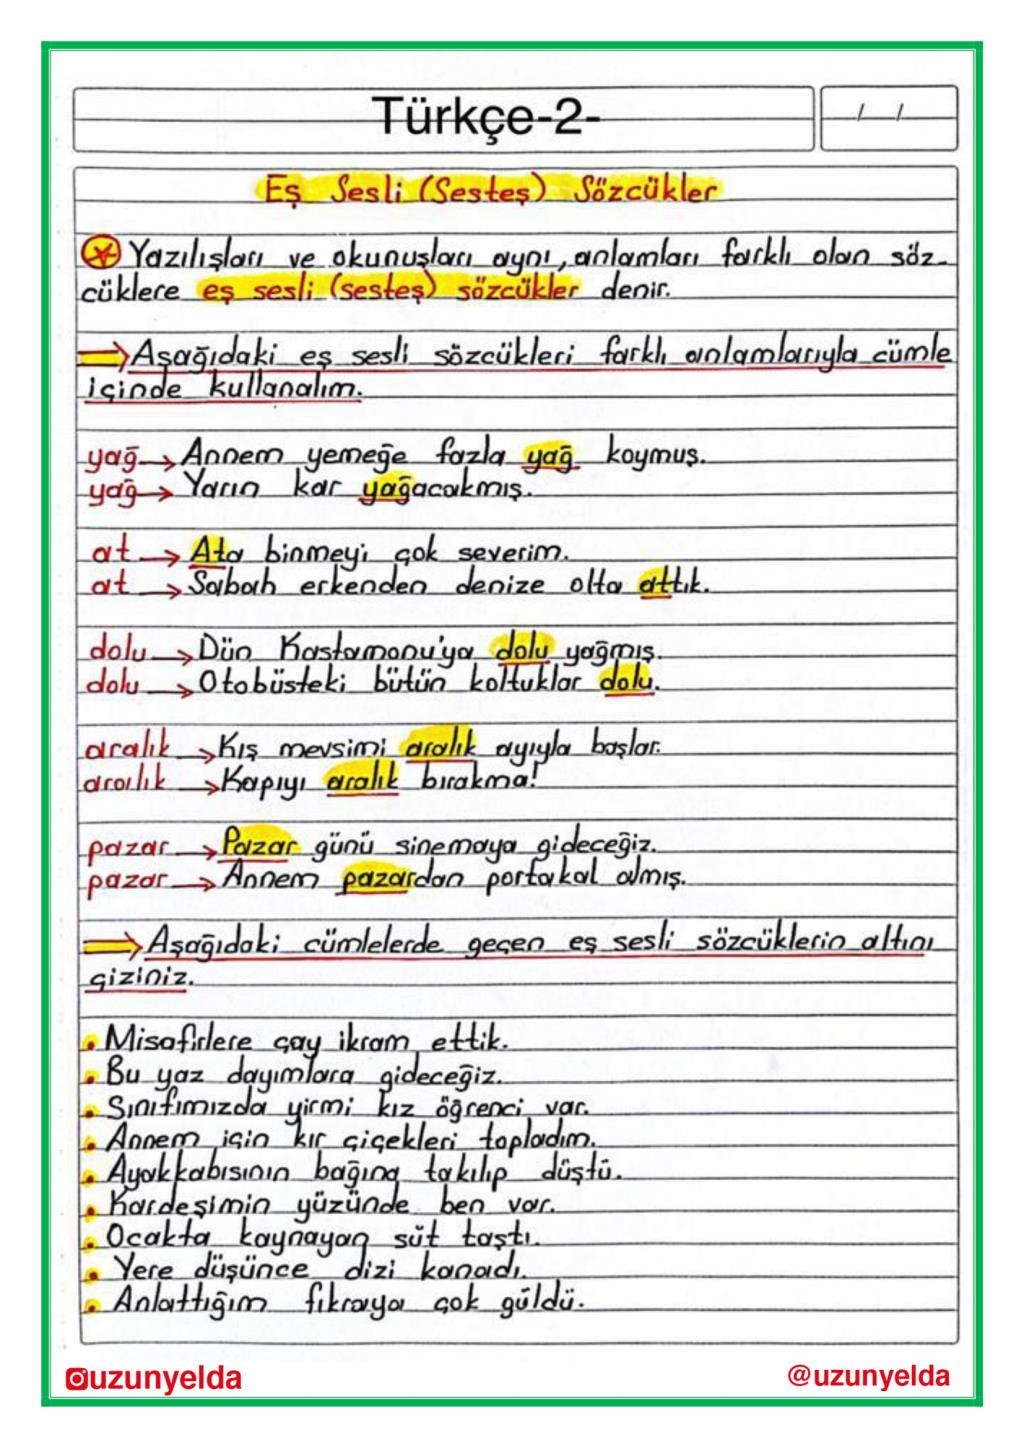 Türkçe-2-
/ /
Eş Sesli (Sesteş) Sözcükler
Yazılışları ve okunuşları aynı, anlamları farklı olan söz-
cüklere eş sesli (sesteş) sözcükler denir.
Aşağıdaki eş sesli sözcükleri farklı anlamlarıyla cümle
içinde kullanalım.
yağ → Annem yemeğe fazla yağ koymuş.
yağ → Yarın kar yağacakmış.
at → Ata binmeyi çok severim.
at → Sabah erkenden denize olta attık.
dolu → Dün Kastamonu'ya dolu yağmış.
dolu → Otobüsteki bütün koltuklar dolu.
aralık → Kış mevsimi aralık ayıyla başlar.
aralık → Kapıyı aralık bırakma!
pazar → Pazar günü sinemaya gideceğiz.
pazar → Annem pazardan portakal almış.
Aşağıdaki cümlelerde geçen eş sesli sözcüklerin altını
çiziniz.
Misafirlere çay ikram ettik.
Bu yaz dayımlara gideceğiz.
Sınıfımızda yirmi kız öğrenci var.
Annem için kır çiçekleri topladım.
Ayakkabısının bağına takılıp düştü.
Kardeşimin yüzünde ben var.
Ocakta kaynayan süt taştı.
Yere düşünce dizi kanadı.
Anlattığım fıkraya çok güldü.
uzunyelda
@uzunyelda